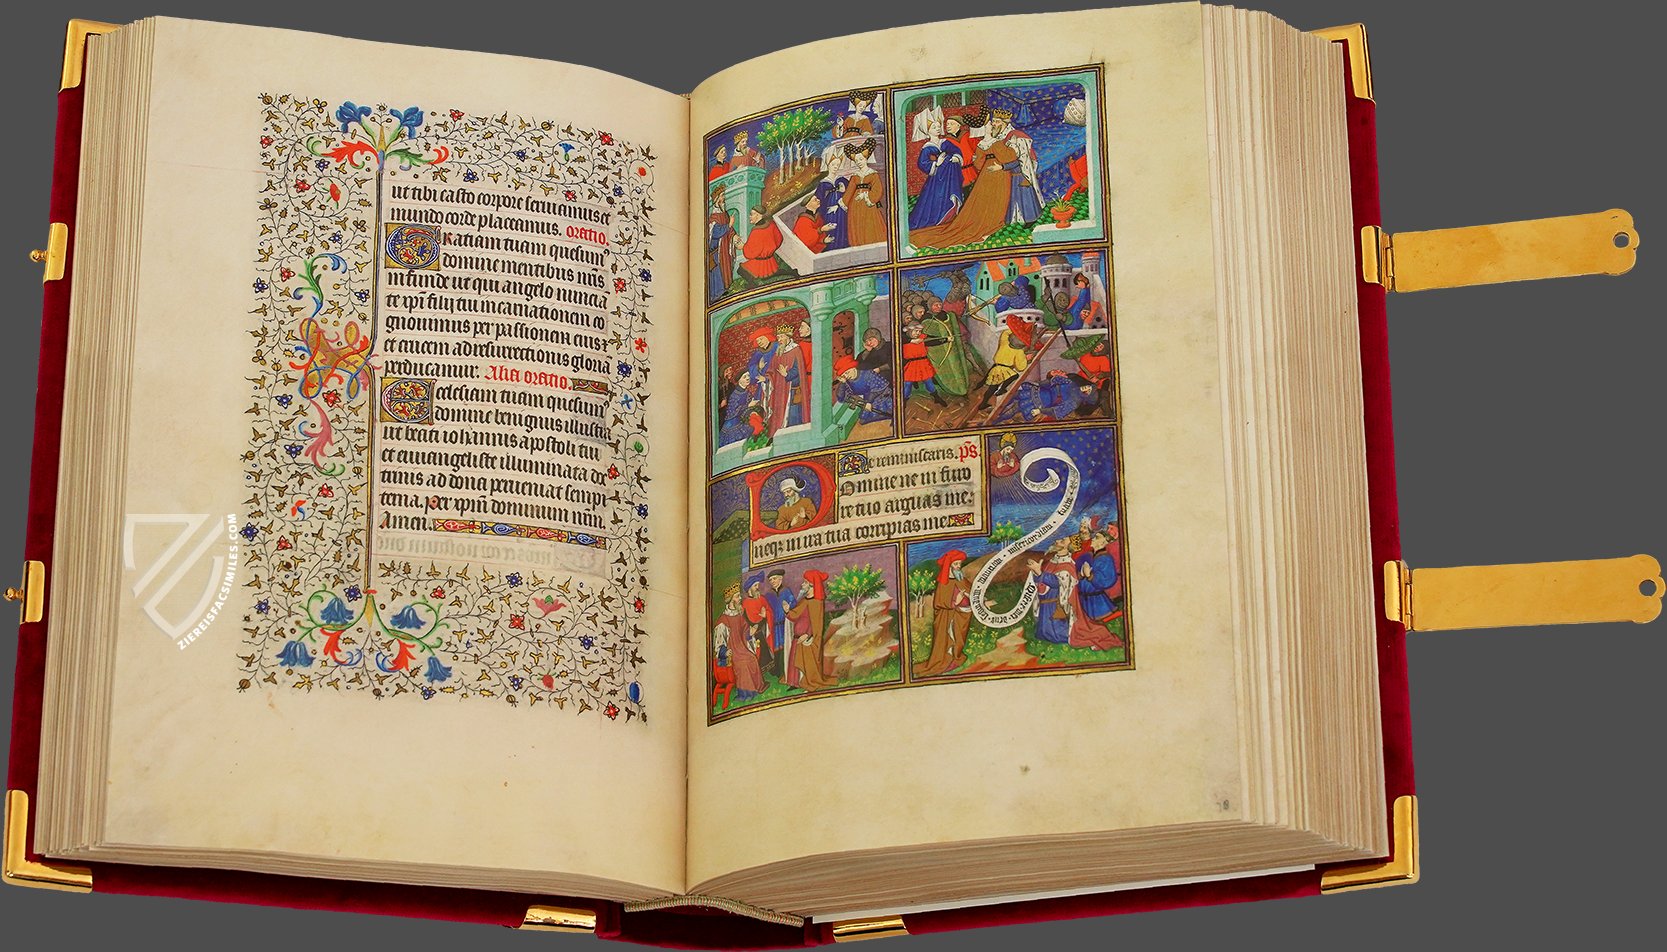 ut tibi casto corpore seruiamus et
mundo corde placeamus. oratio.
Gratiam tuam quesum⁹
domine mentibus nr̄is
infunde ut qui angelo nuncia
te xp̄i filij tui incarnationem co
gnouimus per passionem eius ⁊
et crucem ad resurrectionis gloriā
perducamur. Alia oratio.
Ecclesiam tuam quesum⁹
domine benignus illustra
ut beati iohannis apostoli tui
et euuangeliste illuminata doc
trinis ad dona perueniat sempi
terna. Per xp̄m dominum nr̄m.
Amen.
ZIEREISFACSIMILES.COM
Ne reminiscaris. p̄s.
Domine ne in furo
re tuo arguas me:
neqz in ira tua corripias me.
Miserere mei deus secundum magnam misericordiam tuam
78